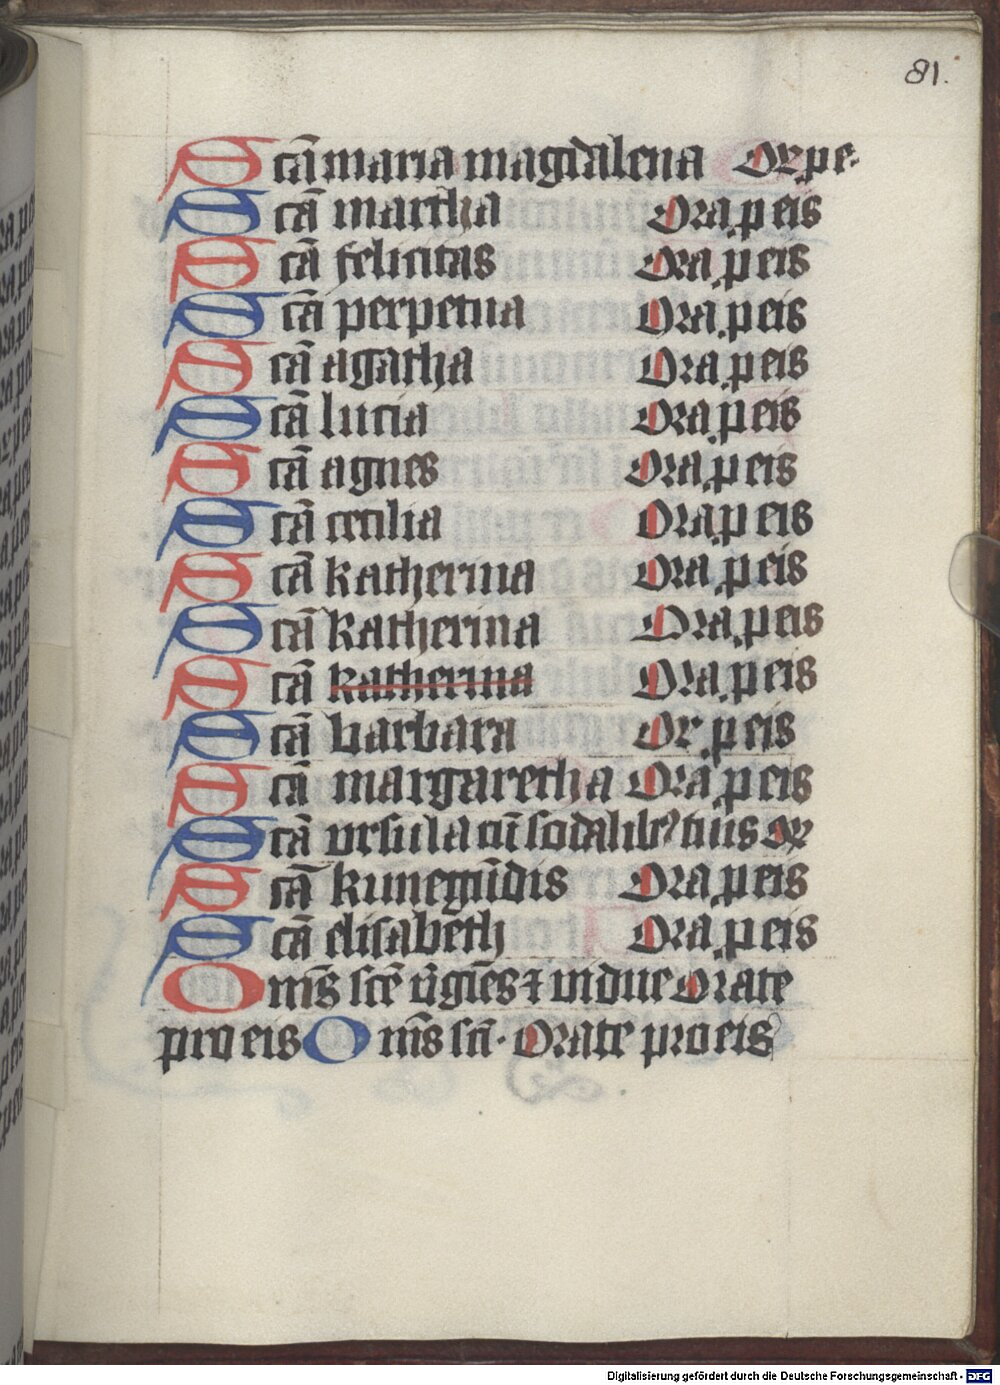 81.
Scā maria magdalena Or. p e.
Scā martha Ora. p eis
Scā felicitas Ora. p eis
Scā perpetua Ora. p eis
Scā agatha Ora. p eis
Scā lucia Ora. p eis
Scā agnes Ora. p eis
Scā cecilia Ora. p eis
Scā katherina Ora. p eis
Scā katherina Ora. p eis
Scā katherina Ora. p eis
Scā barbara Or. p eis
Scā margaretha Ora. p eis
Scā vrsula cū sodalib' tuis Or
Scā kunegūdis Ora. p eis
Scā elisabeth Ora. p eis
Om̄s scē v̄gīes ⁊ vidue Orate
pro eis Om̄s scī. Orate pro eis
Digitalisierung gefördert durch die Deutsche Forschungsgemeinschaft - DFG